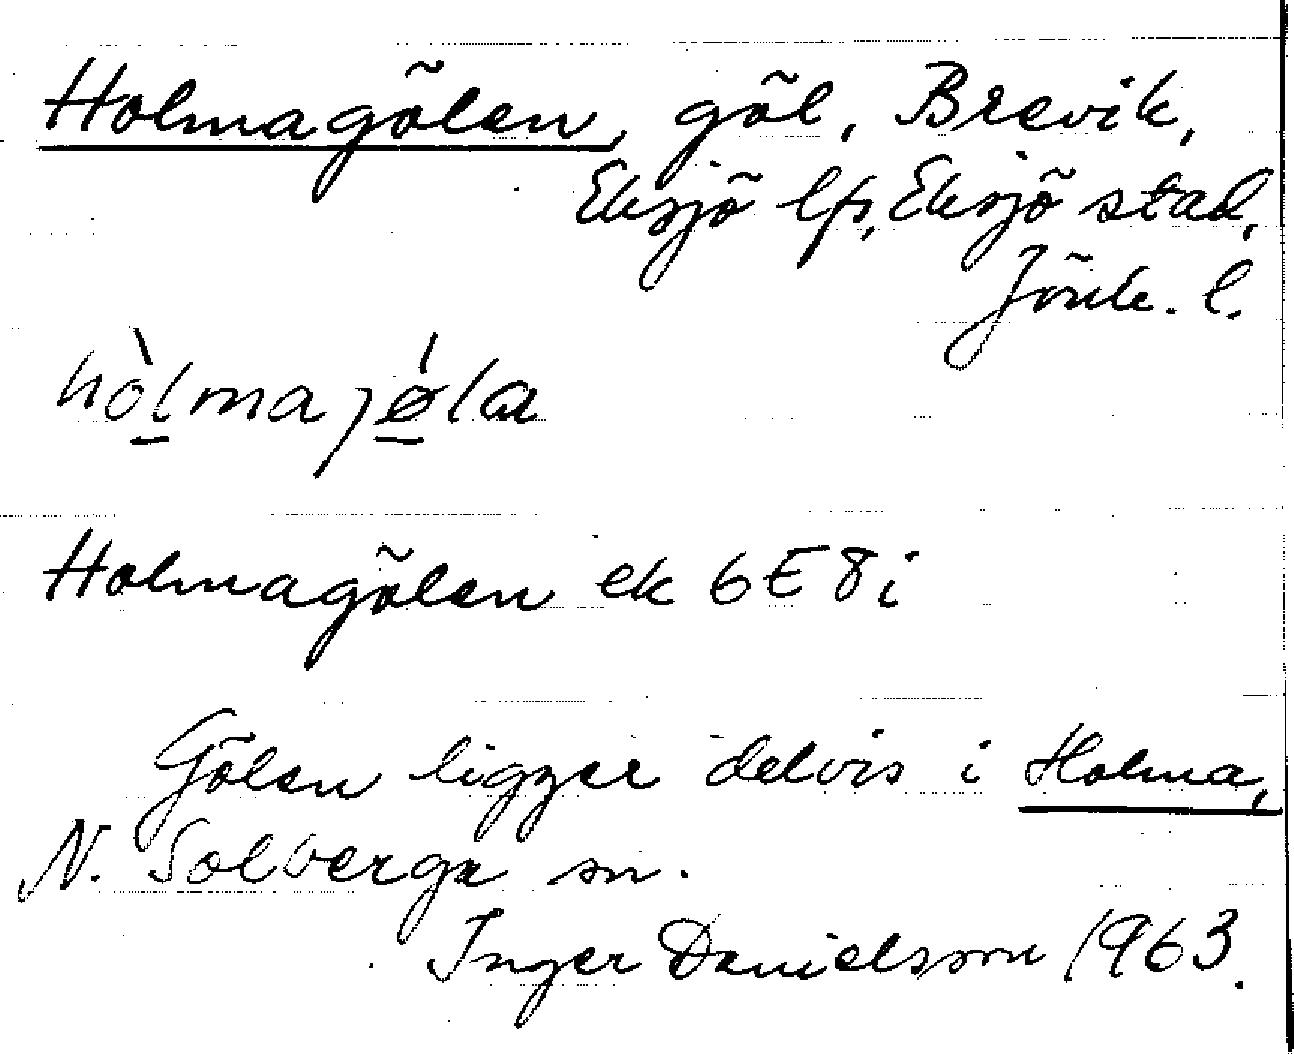 Holmagölen, göl, Brevik,
Eksjö lfs, Eksjö stad,
Jönk. l.
hòl̠maȷǿ̠la
Holmagölen ek 6E8i
Gölen ligger delvis i Holma,
N. Solberga sn.
Inger Danielsson 1963.